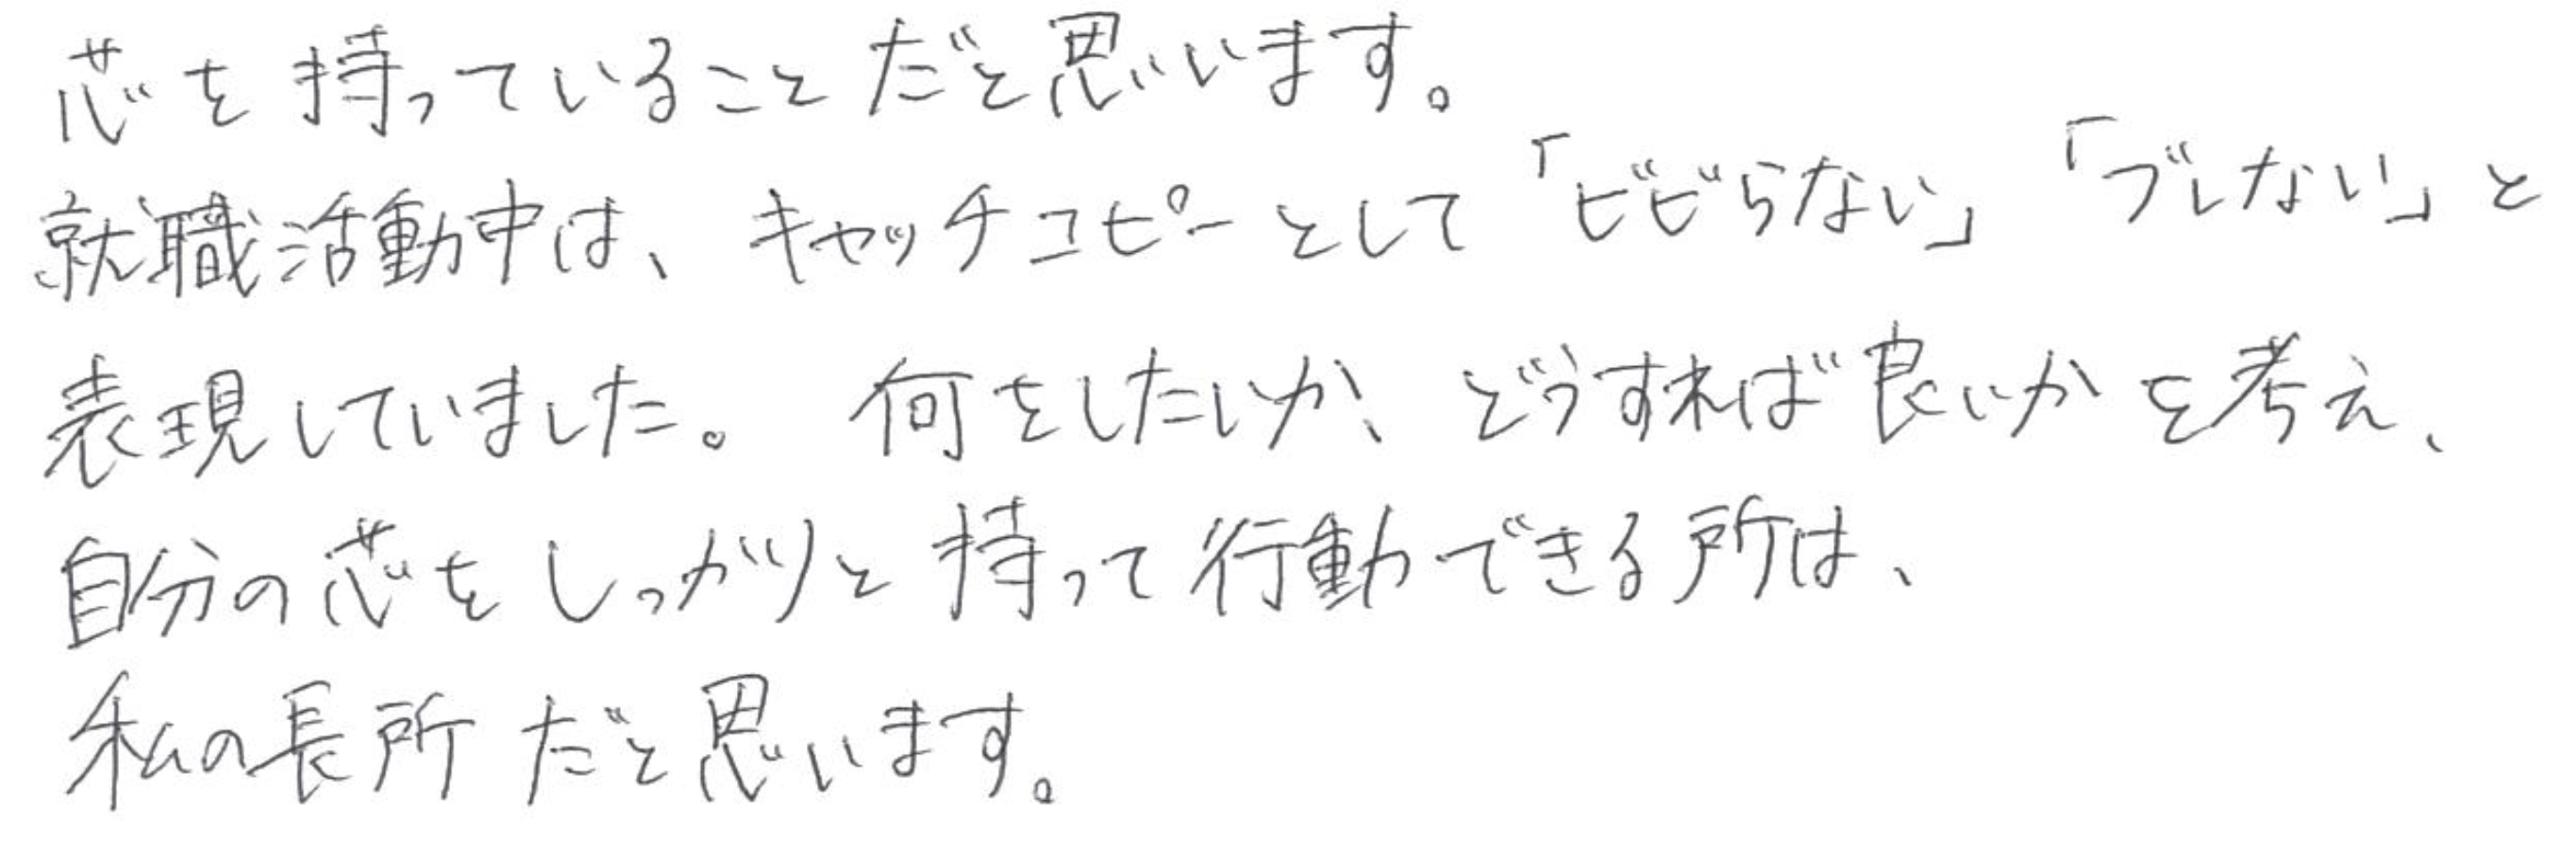 芯を持っていることだと思います。
就職活動中は、キャッチコピーとして「ビビらない」「ブレない」と
表現していました。何をしたいか、どうすれば良いかを考え、
自分の芯をしっかりと持って行動できる所は、
私の長所だと思います。